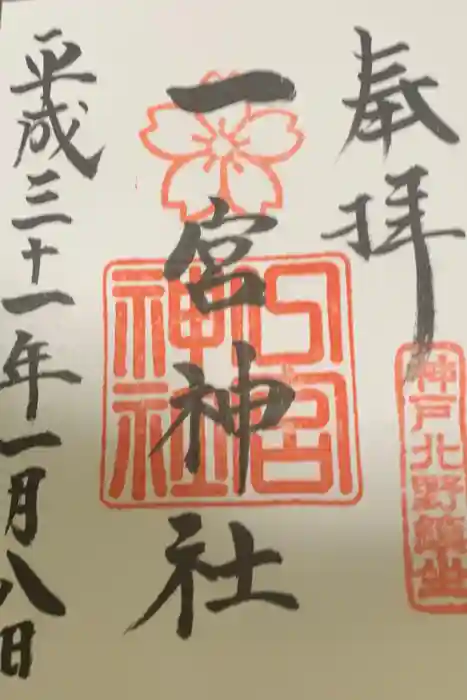 奉拝
神戸北野鎮坐
一宮神社
一宮神社
平成三十一年一月八日